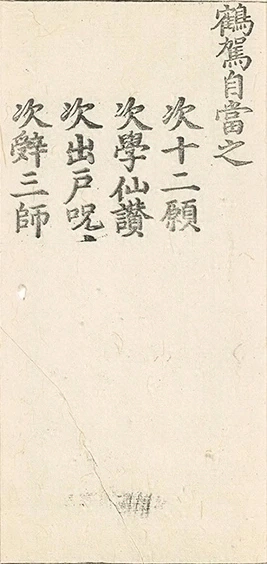 鶴駕自當之
次十二願
次學仙讚
次出戶呪
次辭三師